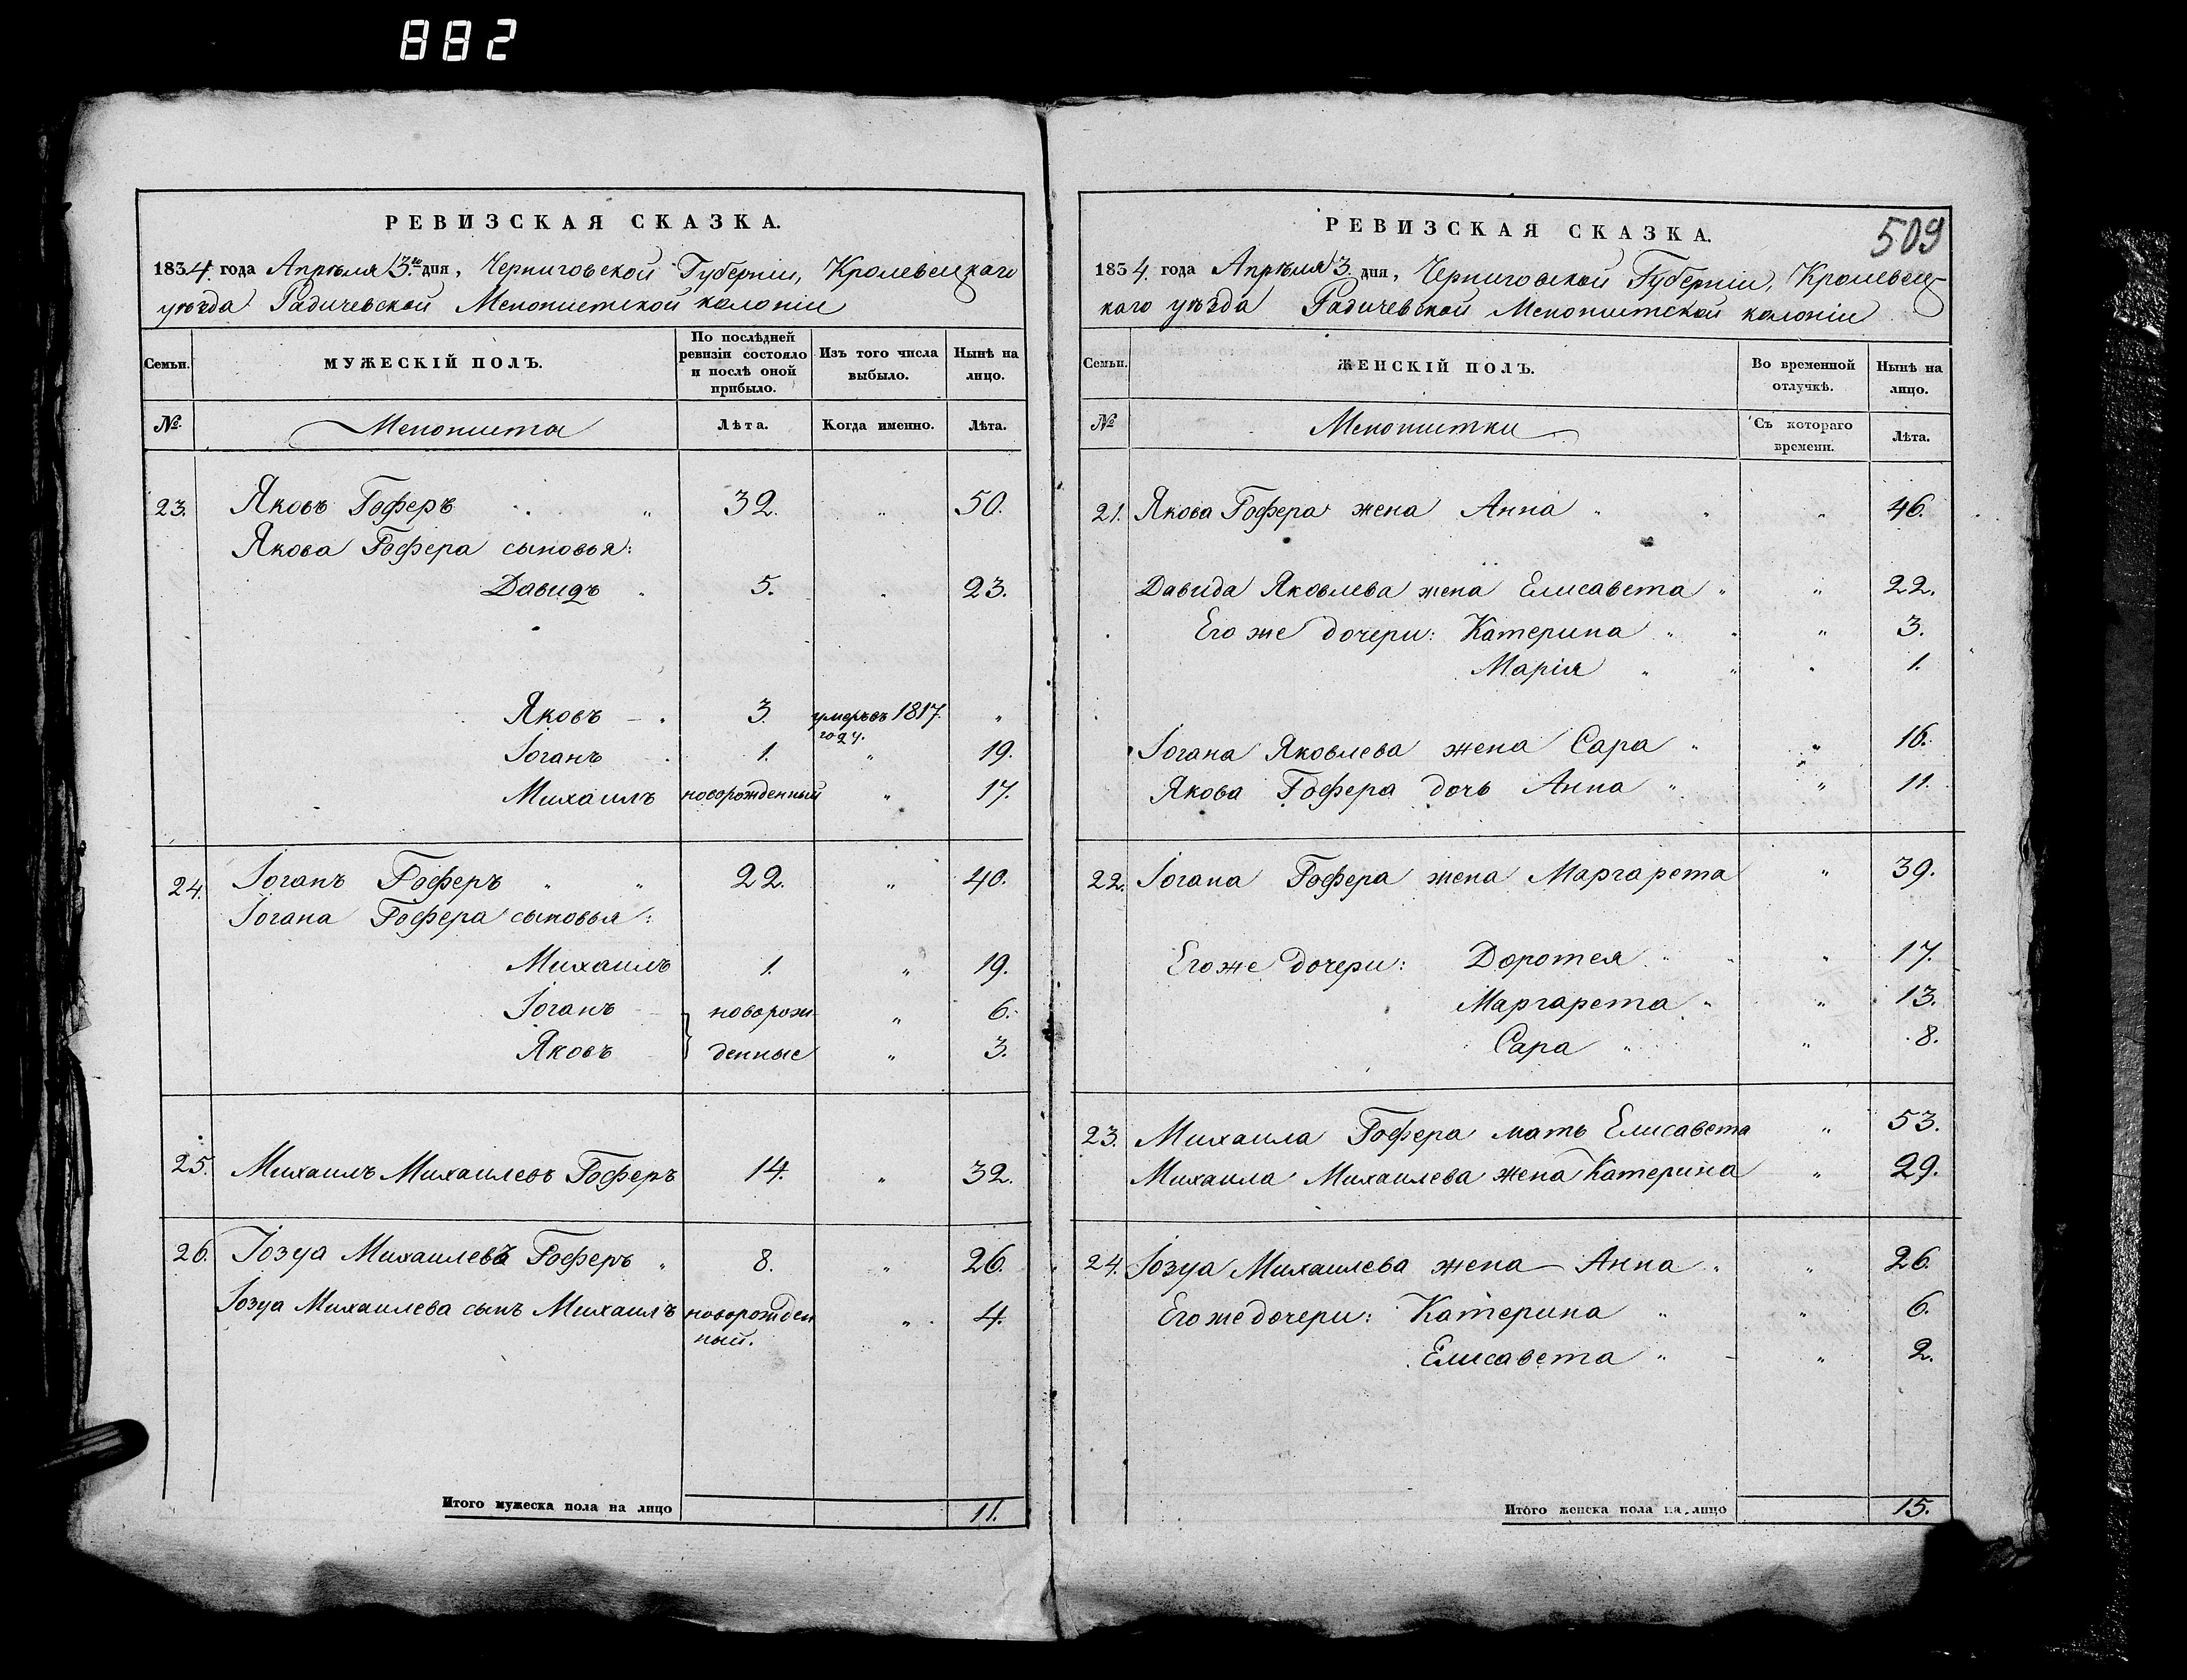 882
РЕВИЗСКАЯ СКАЗКА.
1834. года Апрѣля 3.го дня, Черниговской Губерніи, Кролевецкаго
уѣзда Радичевской Менонитской колоніи
Семьи. МУЖЕСКІЙ ПОЛЪ. По послѣдней ревизіи состояло и послѣ оной прибыло. Изъ того числа выбыло. Нынѣ на лицо.
№. Менониты Лѣта. Когда именно. Лѣта.
23. Яковъ Гоферъ „ 32. „ 50.
Якова Гофера сыновья:
Давидъ 5. „ 23.
Яковъ 3. умеръ въ 1817. году. „
Іоганъ 1. „ 19.
Михаилъ новорожденный „ 17.
24. Іоганъ Гоферъ „ „ 22. „ 40.
Іогана Гофера сыновья:
Михаилъ 1. „ 19.
Іоганъ новорож- „ 6.
Яковъ денные „ 3.
25. Михаилъ Михаилевъ Гоферъ 14. „ 32.
26. Іозуа Михаилевъ Гоферъ „ 8. „ 26.
Іозуа Михаилева сынъ Михаилъ новорожден „ 4.
ный.
Итого мужеска пола на лицо 11.
509
РЕВИЗСКАЯ СКАЗКА.
1834. года Апрѣля 3. дня, Черниговской Губерніи, Кролевец-
каго уѣзда Радичевской Менонитской колоніи
Семьи. ЖЕНСКІЙ ПОЛЪ. Во временной отлучкѣ. Нынѣ на лицо.
№ Менонитки Съ котораго времени. Лѣта.
21. Якова Гофера жена Анна „ „ „ 46.
Давида Яковлева жена Елисавета „ „ 22.
Его же дочери: Катерина „ „ „ 3.
Марія „ „ „ 1.
Іогана Яковлева жена Сара „ „ 16.
Якова Гофера дочь Анна „ „ 11.
22. Іогана Гофера жена Маргарета „ 39.
Его же дочери: Доротея „ „ 17.
Маргарета „ „ 13.
Сара „ „ 8.
23. Михаила Гофера мать Елисавета „ 53.
Михаила Михаилева жена Катерина „ 29.
24. Іозуа Михаилева жена Анна „ „ 26.
Его же дочери: Катерина „ „ 6.
Елисавета „ „ 2.
Итого женска пола на лицо 15.